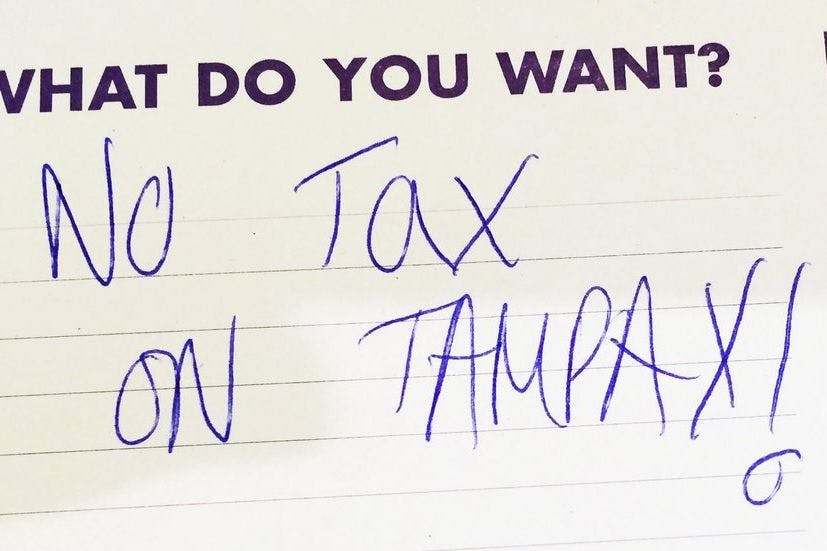 WHAT DO YOU WANT?
NO TAX
ON TAMPAX!